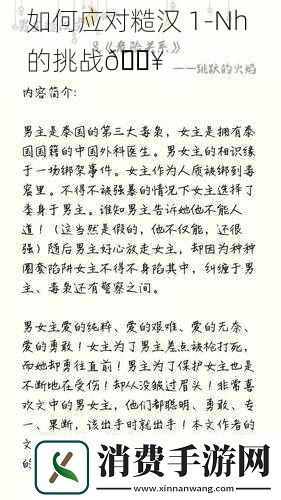 如何应对糙汉 1-Nh
的挑战ð¥
《危险关系》
——跳跃的火焰
内容简介:
男主是泰国的第三大毒枭,女主是拥有泰
国国籍的中国外科医生。男女主的相识缘
于一场绑架事件。女主作为人质被绑到毒
窝里。不得不被强暴的情况下女主选择了
委身于男主。谁知男主告诉她他不能人
道!(这当然是假的,他不仅能,还很
强)随后男主好心放走女主,却因为种种
圈套陷阱女主不得不身陷其中,纠缠于男
主、毒枭还有警察之间。
男女主爱的纯粹、爱的艰难、爱的无奈、
爱的勇敢!女主为了男主差点被枪打死,
而她却勇往直前!男主为了保护女主也是
不断地在受伤!却从没皱过眉头!非常喜
欢文中的男女主,他们都聪明、勇敢、专
一、果断,该出手时就出手!本文作者的
文
的
消费手游网
www.xinnanwang.com